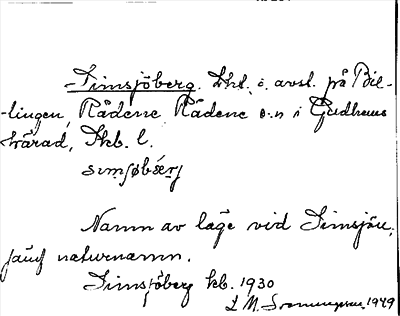 -Simsjöberg. Lht. o. avst. på Bil-
-lingen, Rådene Rådene s:n i Gudhems
härad, Skb. l.
simʃøbærj
Namn av läge vid Simsjön,
naturnamn.
Simsjöberg kb. 1930
L. M. 1949